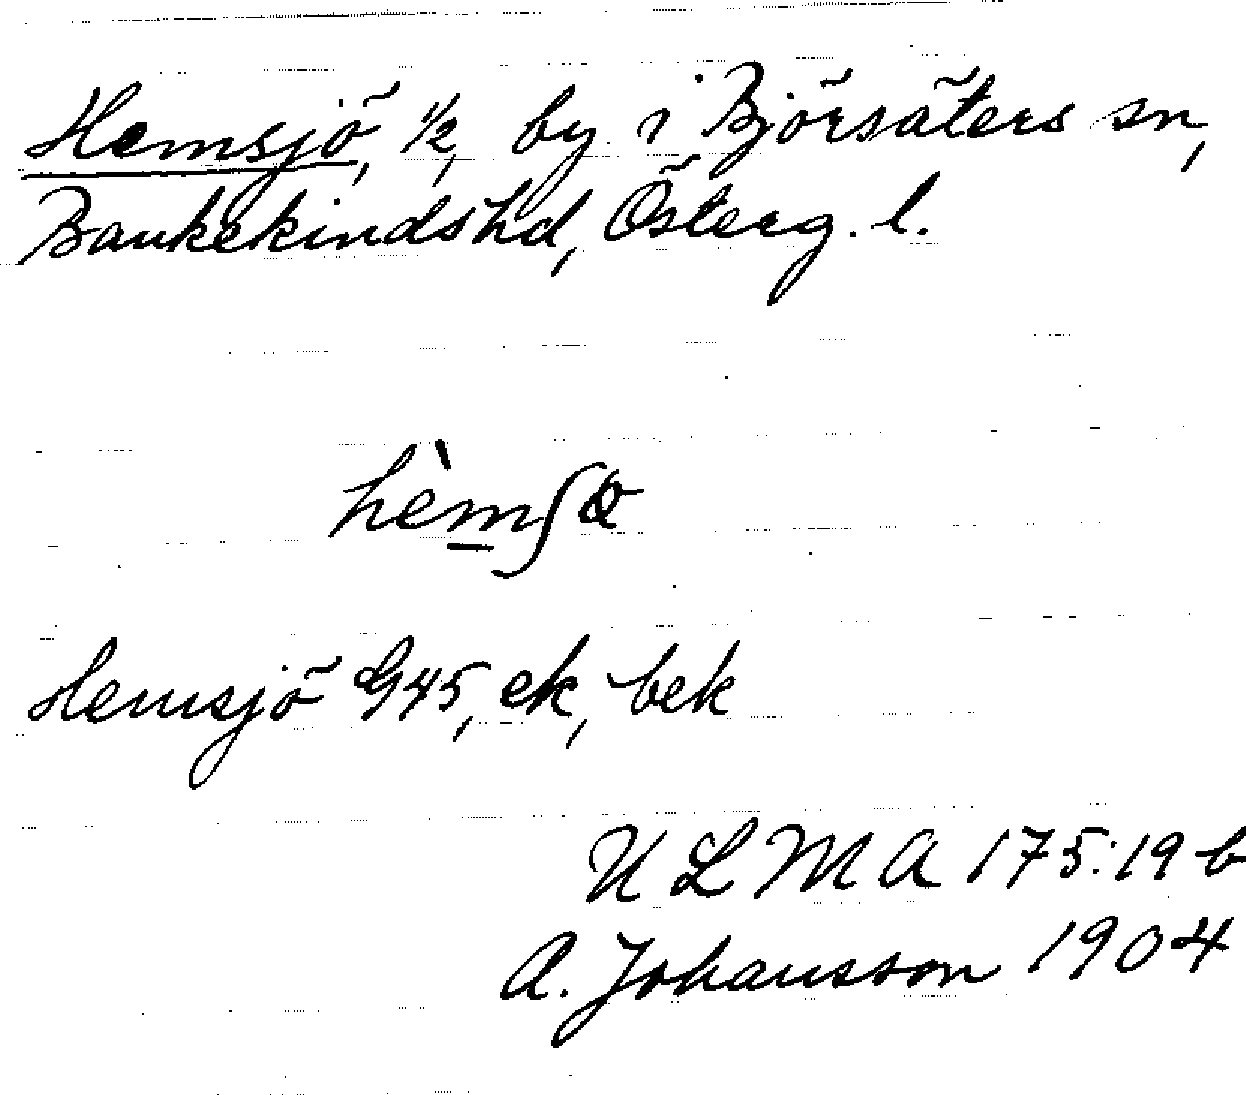 Hemsjö, ½, by i Björsäters sn,
Bankekindshd, Österg. l.
Hemsjö G45, ek, bek
ULMA 175:19 b
A. Johansson 1904